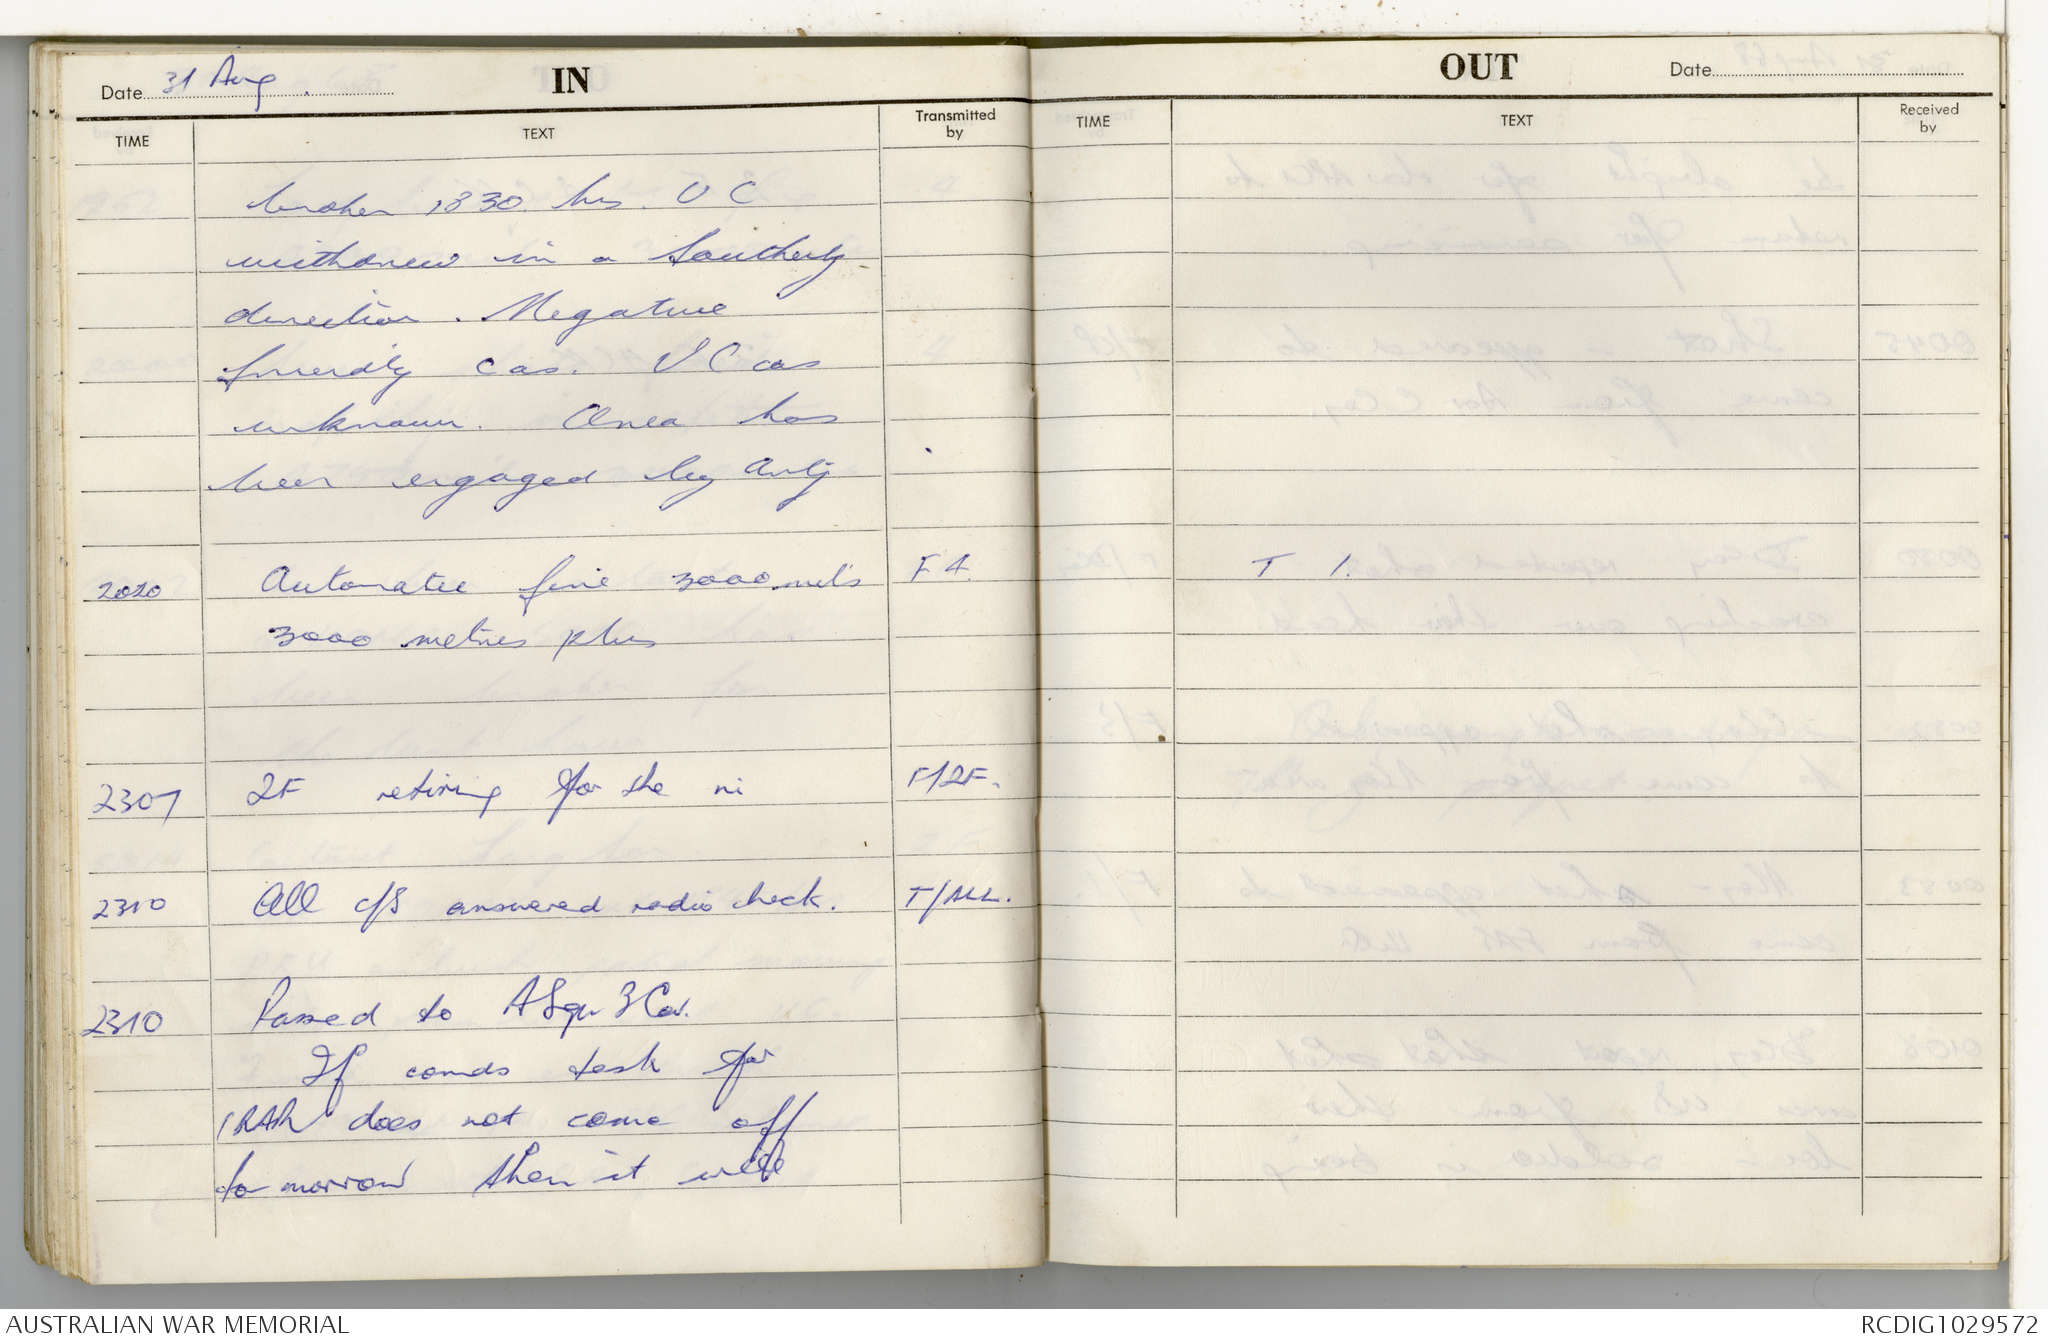 Date 31 Aug.
IN
TIME
TEXT
Transmitted by
broken 1830 hrs. V C
withdrew in a Southerly
direction. Negative
friendly cas. V C cas
unknown. Area has
been engaged by Arty
2020 Automatic fire 3000 mils F 4
3000 metres plus
2307 2F retiring for the ni F/2F.
2310 All c/s answered radio check. T/ALL.
2310 Passed to A Sqn 3 Cav.
If comds task for
1RAR does not come off
tomorrow then it will
OUT
Date
TIME
TEXT
Received by
T 1.
AUSTRALIAN WAR MEMORIAL
RCDIG1029572